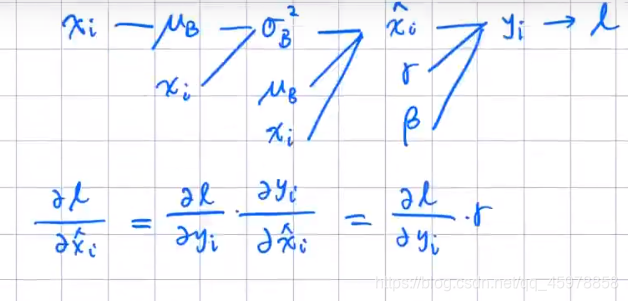 xᵢ — μ_B — σ_B² → x̂ᵢ → yᵢ → l
xᵢ μ_B γ
xᵢ β
∂l/∂x̂ᵢ = ∂l/∂yᵢ · ∂yᵢ/∂x̂ᵢ = ∂l/∂yᵢ · γ
https://blog.csdn.net/qq_45978858